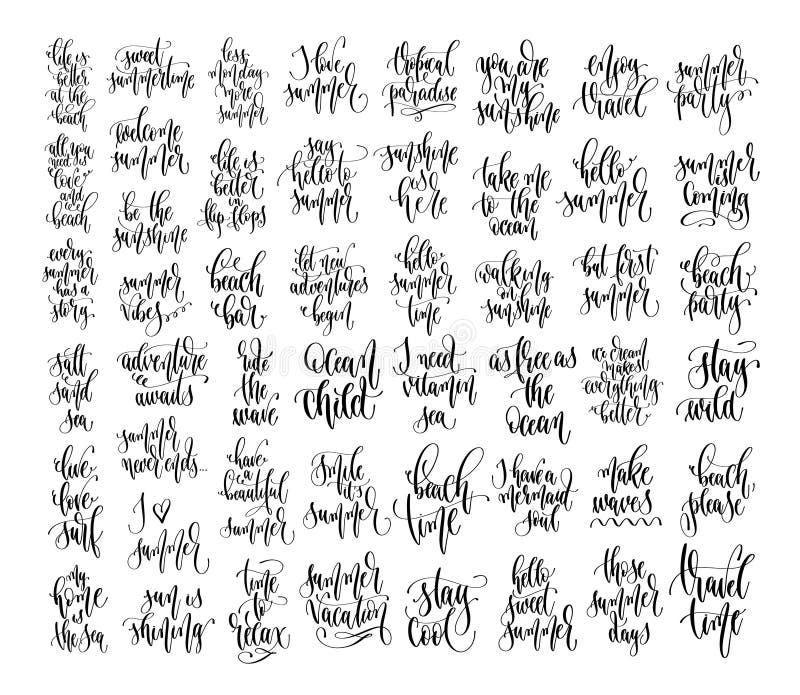 life is
better
at the
beach
all you
need is
love
and
beach
every
summer
has a
story
salt
sand
sea
live
love
surf
my
home
is
the sea
sweet
summertime
welcome
summer
be the
sunshine
summer
vibes
adventure
awaits
summer
never ends...
I ♡
summer
sun is
shining
less
monday
more
summer
life is
better
in
flip flops
beach
bar
ride
the
wave
have
a
beautiful
summer
time
to
relax
I love
summer
say
hello to
summer
let new
adventures
begin
Ocean
child
smile
it's
summer
summer
vacation
tropical
paradise
sunshine
is
here
hello
summer
time
I need
vitamin
sea
beach
time
stay
cool
you are
my
sunshine
take me
to the
ocean
walking
on
sunshine
as free as
the
Ocean
I have a
mermaid
soul
hello
sweet
summer
enjoy
travel
hello
summer
but first
summer
ice cream
makes
everything
better
make
waves
those
summer
days
summer
party
summer
is
coming
beach
party
stay
wild
beach
please
travel
time